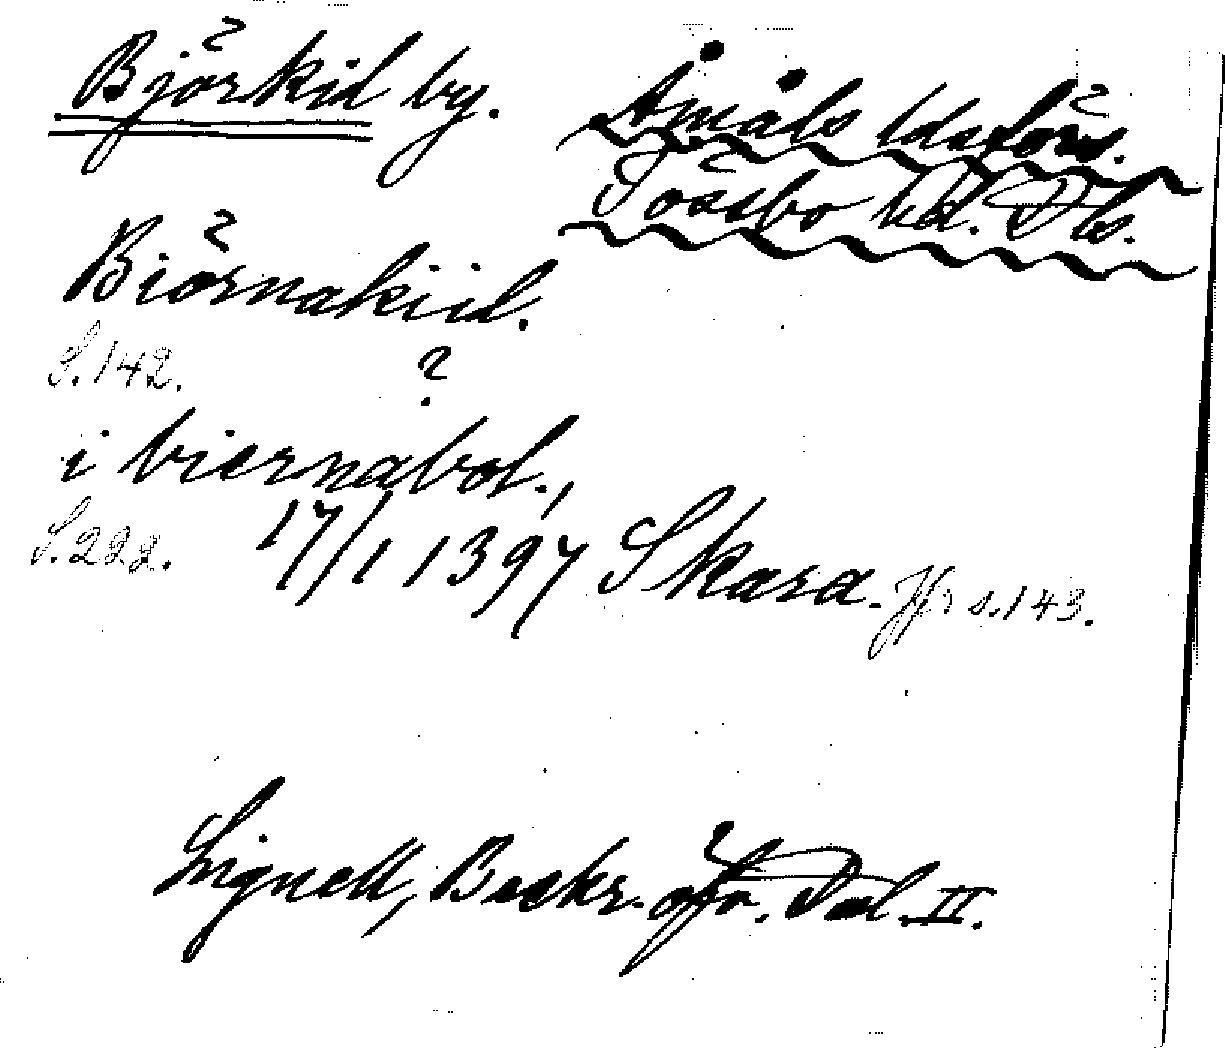 Björkid by.
Åmåls ldsförs.
Tössbo hd. Dls.
Biörnakiid.
S. 142.
?
i biernabol.,
S. 222.
17/1 1397 Skara. Jfr s. 143.
Lignell, Beskr. öfv. Dal. II.